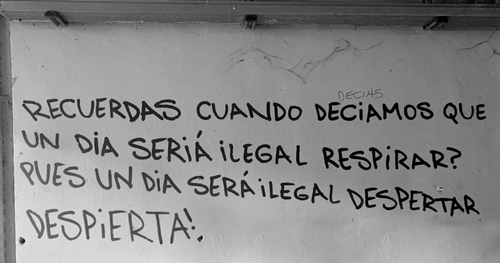 DECIAS
RECUERDAS CUANDO DECIAMOS QUE
UN DIA SERIÁ ILEGAL RESPIRAR?
PUES UN DIA SERÁ ILEGAL DESPERTAR
DESPIERTA!